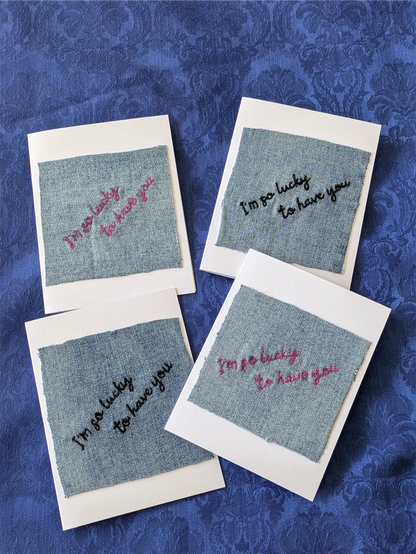 I'm so lucky
to have you
I'm so lucky
to have you
I'm so lucky
to have you
I'm so lucky
to have you